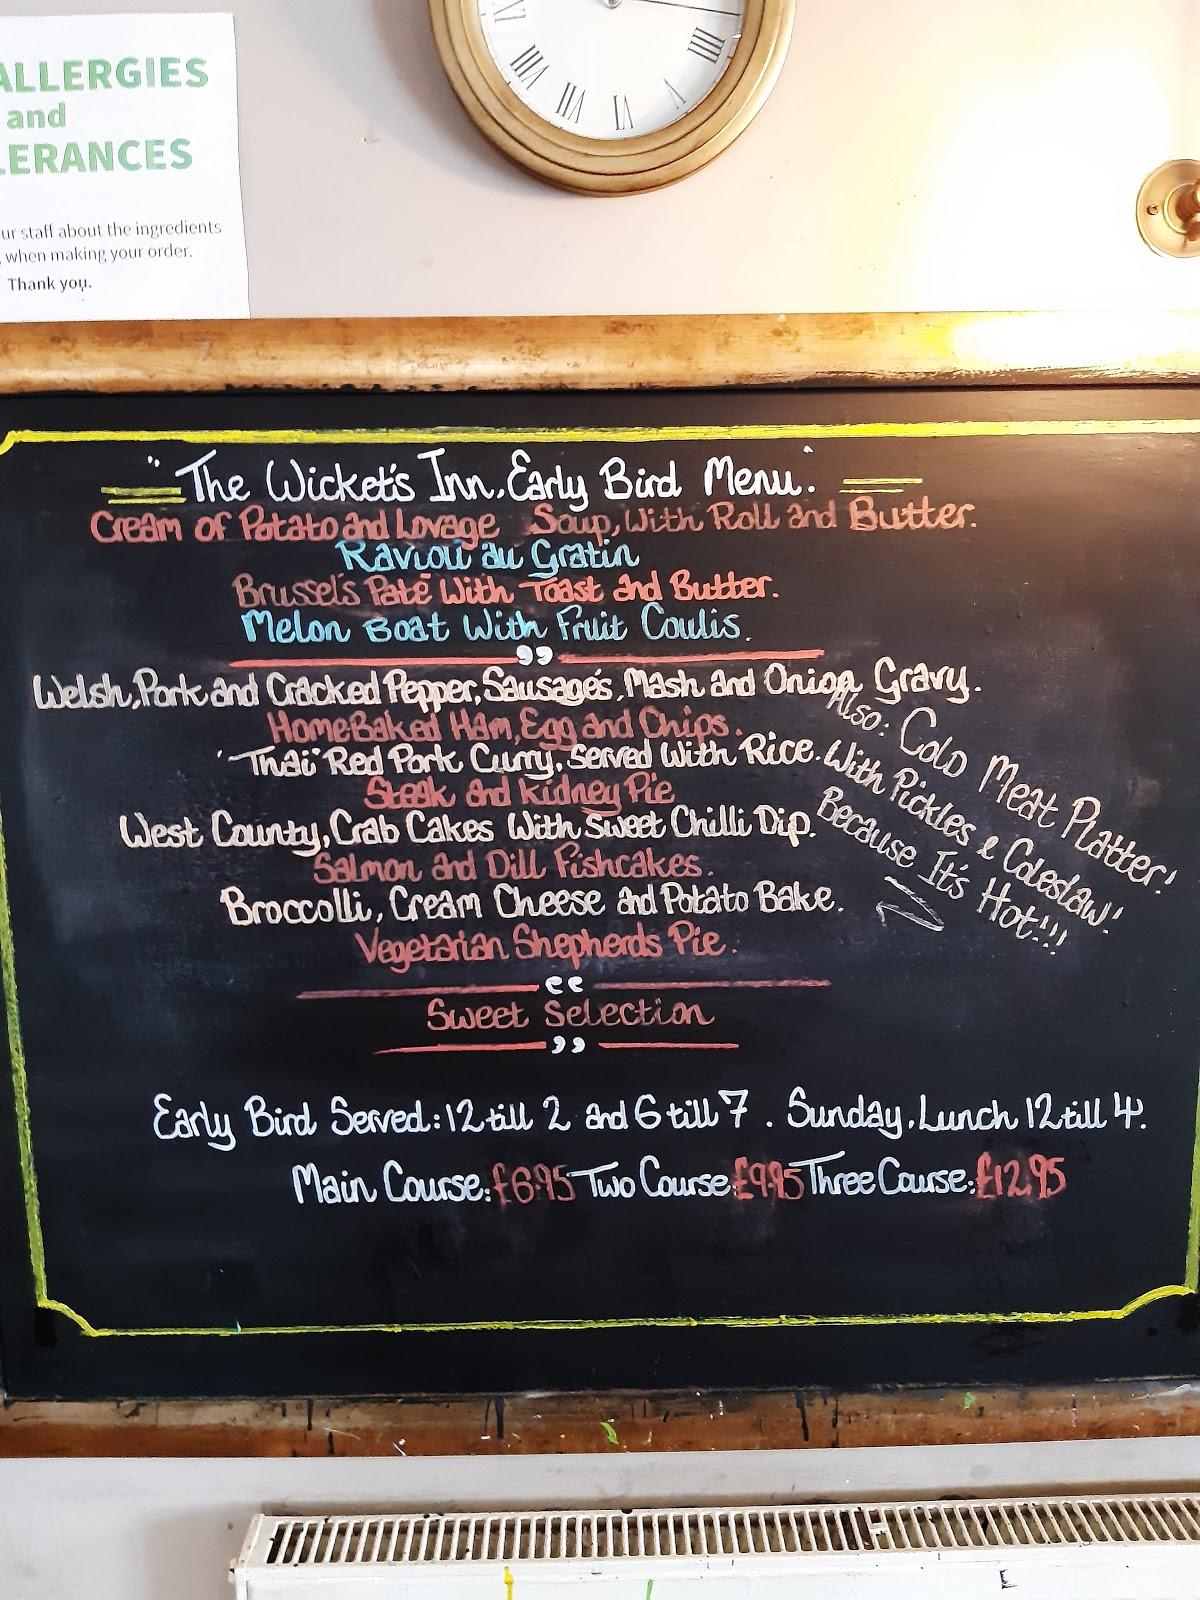 ALLERGIES
and
LERANCES
ur staff about the ingredients
, when making your order.
Thank you.
IIII
V
VI
VII
VIII
"The Wicket's Inn, Early Bird Menu."
Cream of Potato and Lovage Soup, With Roll and Butter.
Ravioli au Gratin
Brussel's Paté With Toast and Butter.
Melon Boat With Fruit Coulis.
Welsh, Pork and Cracked Pepper, Sausage's, Mash and Onion Gravy.
HomeBaked Ham, Egg and Chips.
'Thai' Red Pork Curry, Served With Rice.
Steak and Kidney Pie
West County, Crab Cakes With Sweet Chilli Dip.
Salmon and Dill Fishcakes.
Broccolli, Cream Cheese and Potato Bake.
Vegetarian Shepherds Pie.
Also: Cold Meat Platter!
With Pickles & Coleslaw!
Because It's Hot!!!
Sweet Selection
Early Bird Served: 12 till 2 and 6 till 7. Sunday, Lunch 12 till 4.
Main Course: £6.95 Two Course £9.95 Three Course: £12.95